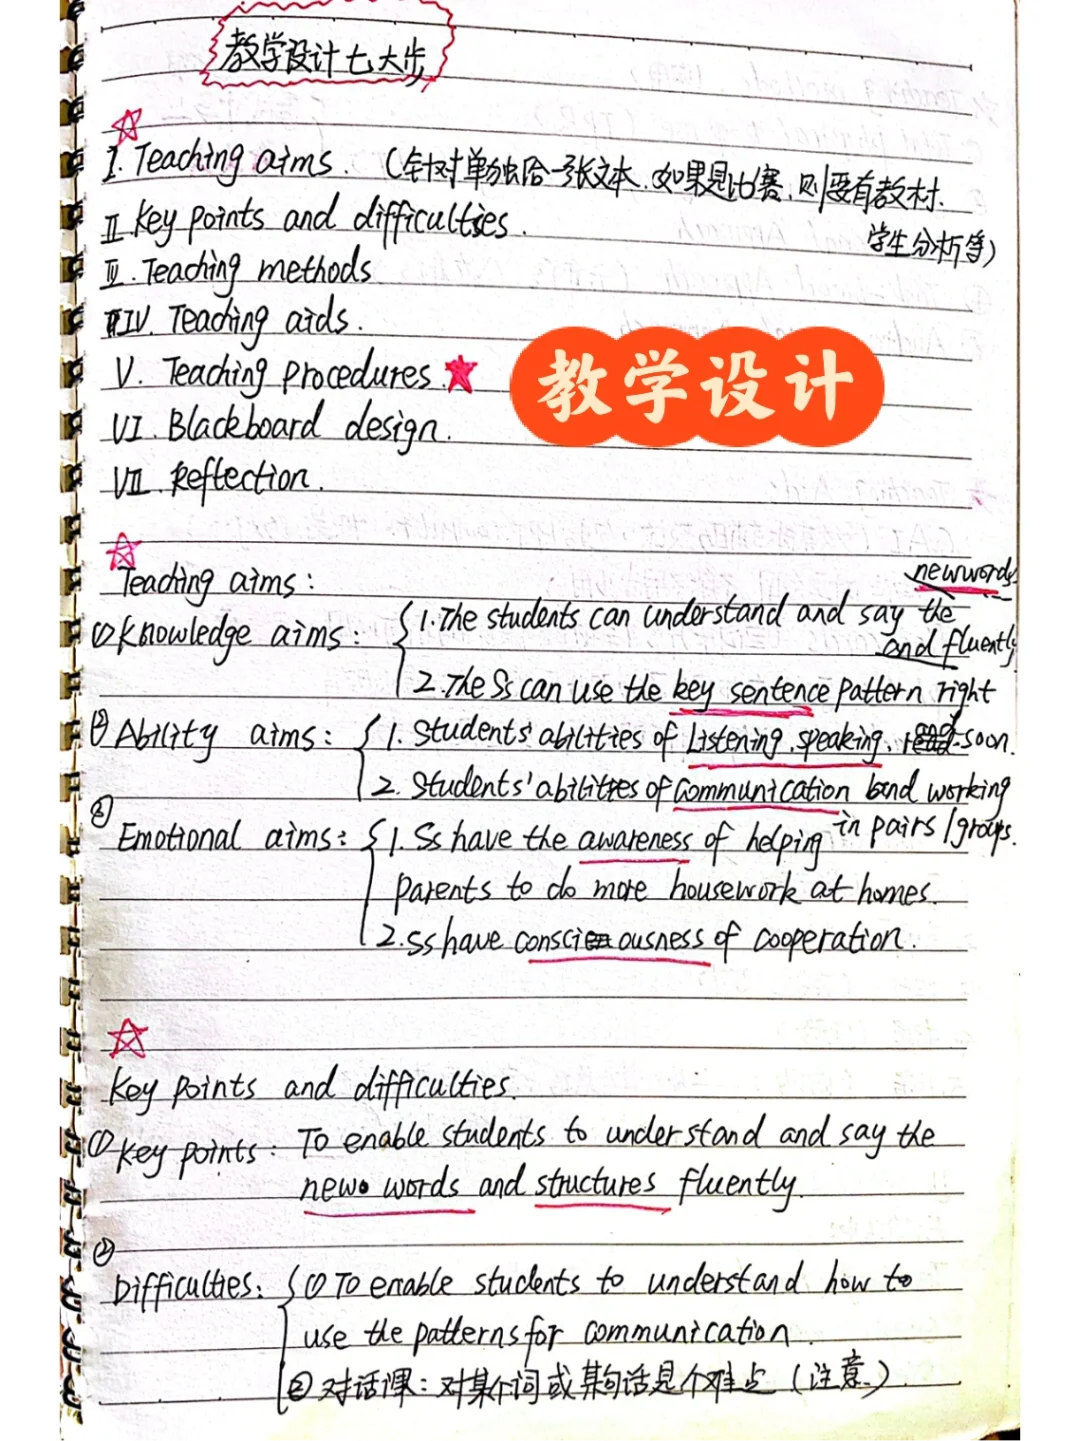 教学设计七大步
I. Teaching aims. (针对单独给一张文本.如果是比赛.则要有教材.
学生分析等)
II Key points and difficulties.
III. Teaching methods
IV. Teaching aids.
V. Teaching procedures.
教学设计
VI. Blackboard design.
VII. Reflection.
Teaching aims:
new words
① Knowledge aims: 1. The students can understand and say the
and fluently
2. The Ss can use the key sentence pattern right
② Ability aims: 1. Students' abilities of listening, speaking, soon.
2. Students' abilities of communication and working
in pairs / groups.
③
Emotional aims: 1. Ss have the awareness of helping
parents to do more housework at homes.
2. Ss have consciousness of cooperation.
Key points and difficulties.
① Key points: To enable students to understand and say the
new words and structures fluently.
②
Difficulties: ① To enable students to understand how to
use the patterns for communication.
② 对话课: 对某个词或某句话是个难点 (注意)